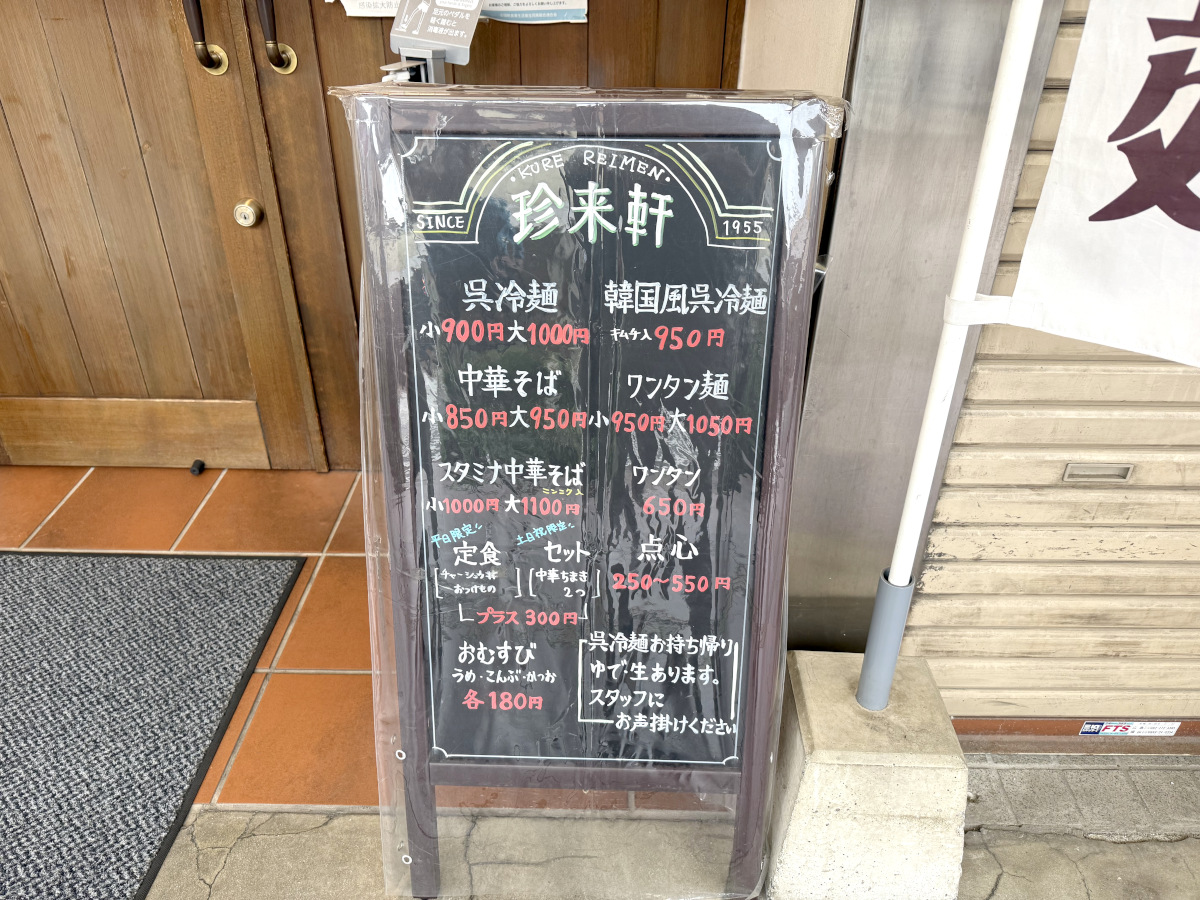 足元のペダルを
軽く踏むと
消毒液が出ます。
・KURE REIMEN・
SINCE 珍来軒 1955
呉冷麺
小900円大1000円
韓国風呉冷麺
キムチ入 950円
中華そば
小850円大950円
ワンタン麺
小950円大1050円
スタミナ中華そば
ニンニク入
小1000円大1100円
ワンタン
650円
平日限定
定食
チャーシュウ丼
おつけもの
土日祝限定
セット
中華ちまき
2つ
プラス300円
点心
250〜550円
おむすび
うめ・こんぶ・かつお
各180円
呉冷麺お持ち帰り
ゆで・生あります。
スタッフに
お声掛けください
FTS